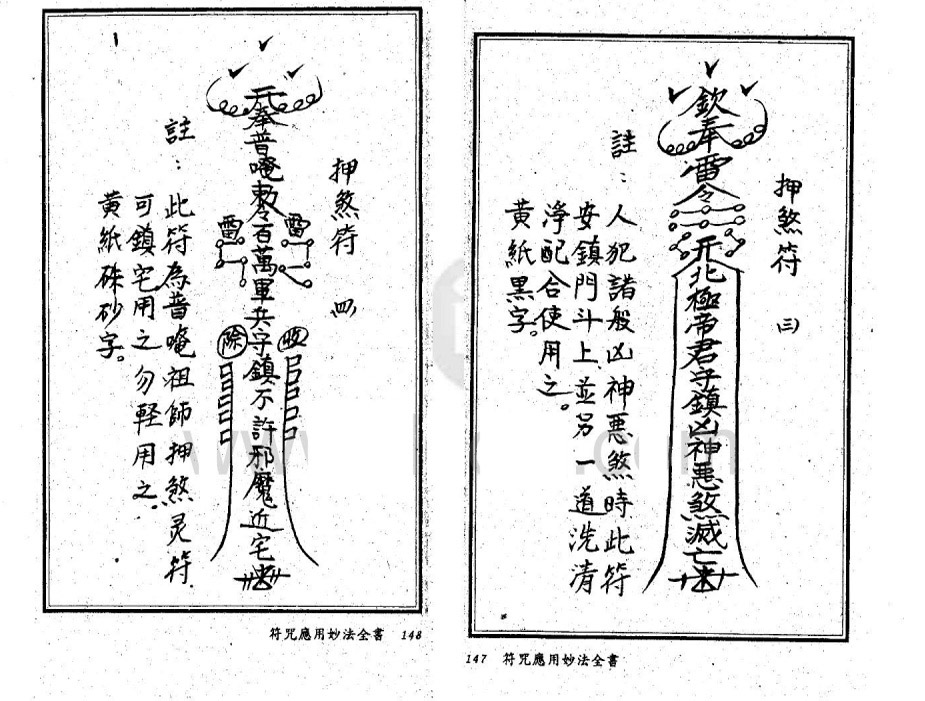 押煞符 三
欽奉雷令
开北極帝君守鎮凶神惡煞滅亡
註：人犯諸般凶神惡煞時此符
安鎮門斗上並另一道洗清
淨配合使用之。
黃紙黑字。
147 符咒應用妙法全書
押煞符 四
奉普唵勅令百萬軍兵守鎮不許邪魔近宅
雷 雷
除
註：此符為普唵祖師押煞灵符
可鎮宅用之勿輕用之。
黃紙硃砂字。
符咒應用妙法全書 148